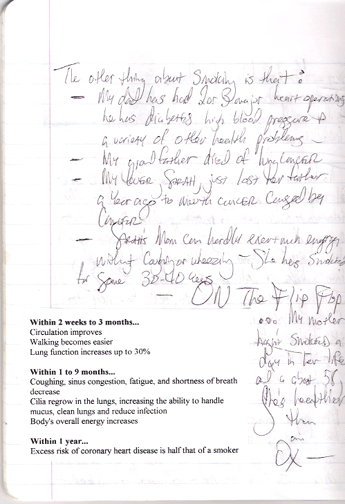 The other thing about Smoking is that:
— My dad has had 2 or 3 major heart operations
he has diabetes, high blood pressure &
a variety of other health problems —
— My grandfather died of lung cancer
— My lover, Sarah, just lost her father
a year ago to mouth cancer caused by
— Sarah's Mom can hardly exert much energy
without coughing or wheezing — She has smoked
for some 30-40 years
— ON The Flip Flop
... My mother
hasn't smoked a
day in her life
at about 58,
She's healthier
than
I am
Within 2 weeks to 3 months...
Circulation improves
Walking becomes easier
Lung function increases up to 30%
Within 1 to 9 months...
Coughing, sinus congestion, fatigue, and shortness of breath
decrease
Cilia regrow in the lungs, increasing the ability to handle
mucus, clean lungs and reduce infection
Body's overall energy increases
Within 1 year...
Excess risk of coronary heart disease is half that of a smoker